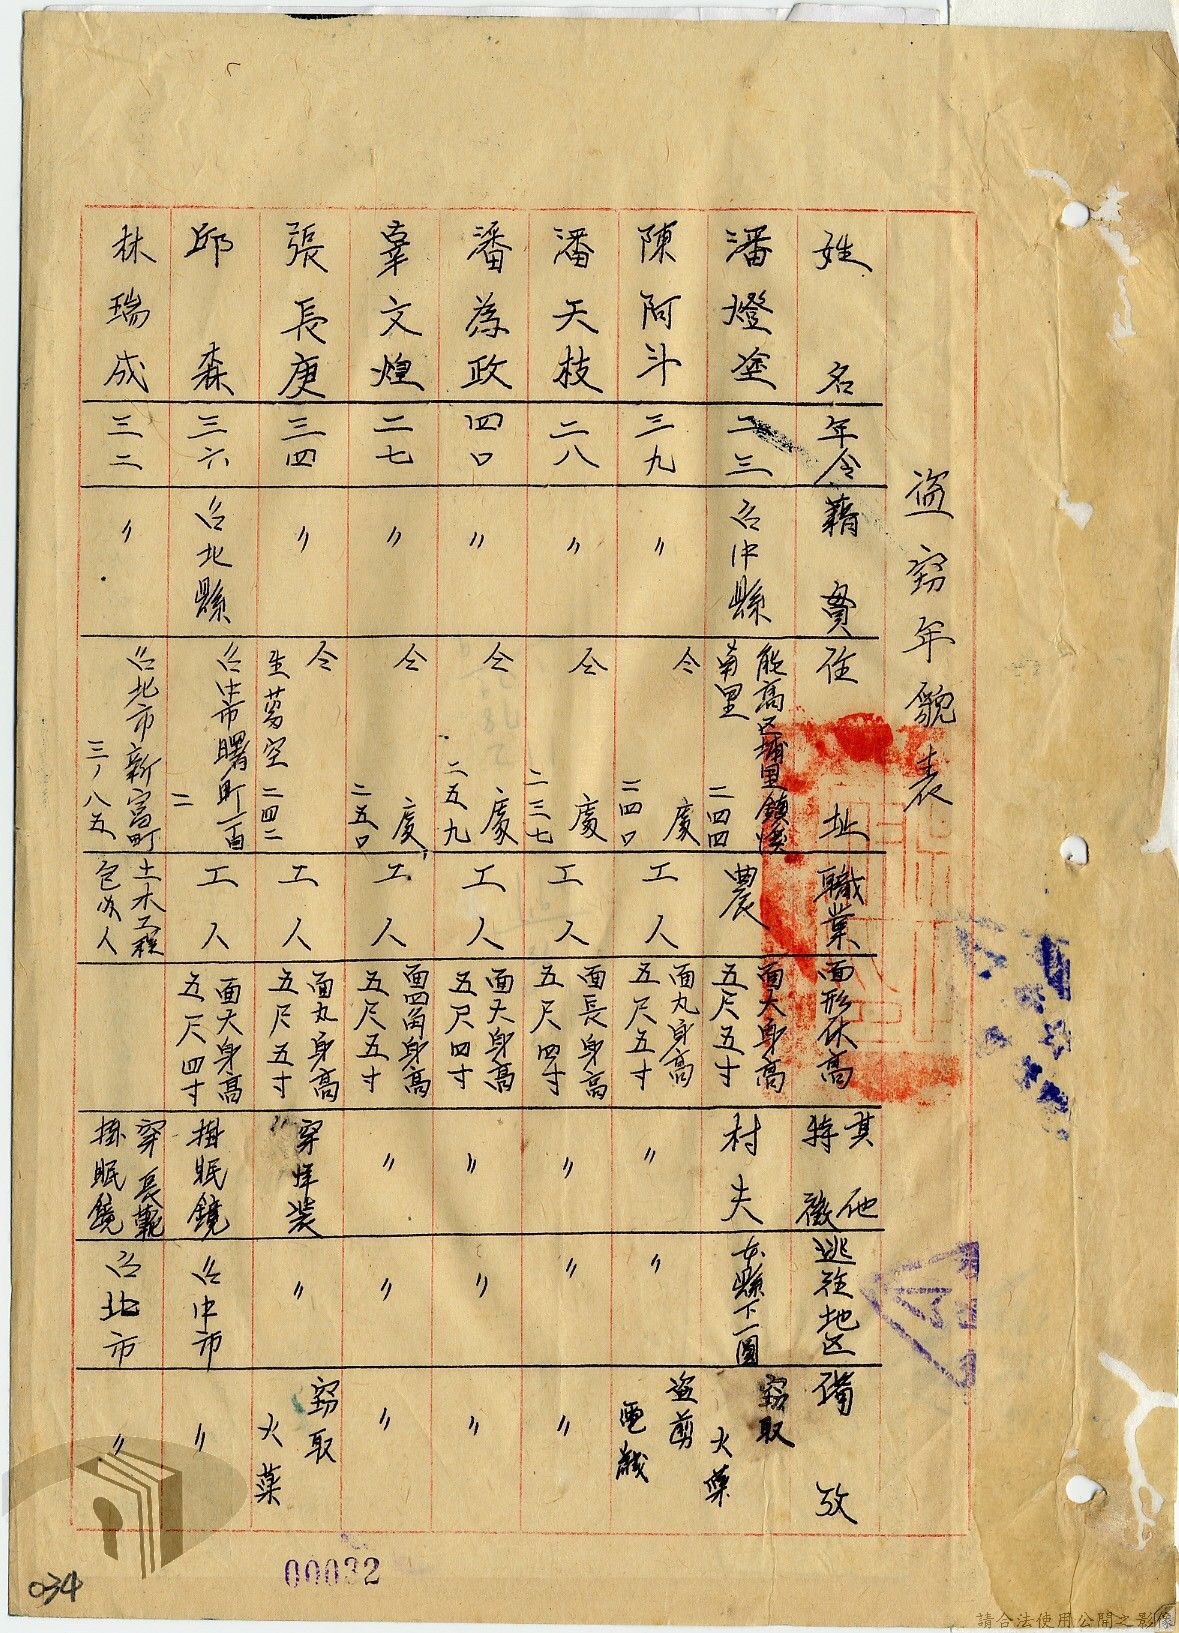 盗窃年貌表
姓名 年令 藉貫 住址 職業 面形体高 其他特徵 逃往地区 備攷
潘燈塗 二三 台中縣 能高区埔里鎮 南里 二四四 農 面大身高五尺五寸 村夫 縣下一圓 窃取火藥
陳阿斗 三九 〃 仝 處 二四〇 工人 面丸身高五尺五寸 〃 〃 盗剪電線
潘天枝 二八 〃 仝 處 二三七 工人 面長身高五尺四寸 〃 〃 〃
潘為政 四〇 〃 仝 處 二五九 工人 面大身高五尺四寸 〃 〃 〃
辜文煌 二七 〃 仝 處 二五〇 工人 面四角身高五尺五寸 〃 〃 〃
張長庚 三四 〃 仝 生蕃空 二四二 工人 面丸身高五尺五寸 穿洋装 〃 窃取火藥
邱森 三六 台北縣 台中市曙町一百 二 工人 面大身高五尺四寸 掛眠鏡 台中市 〃
林瑞成 三二 〃 台北市新富町 三ノ八五 土木工程包办人 穿長靴掛眠鏡 台北市 〃
00032
034
請合法使用公開之影像